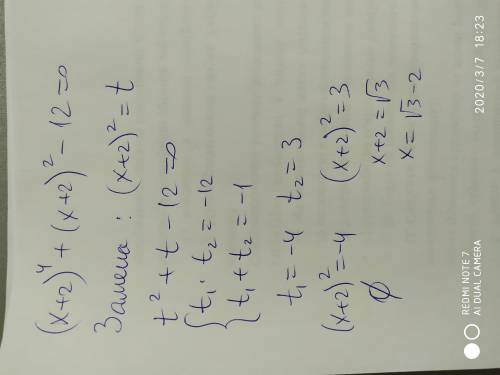 (x+2)⁴ + (x+2)² - 12 = 0
Замена : (x+2)² = t
t² + t - 12 = 0
{ t₁ · t₂ = -12
{ t₁ + t₂ = -1
t₁ = -4 t₂ = 3
(x+2)² = -4 (x+2)² = 3
∅ x+2 = √3
x = √3 - 2
REDMI NOTE 7
AI DUAL CAMERA
2020/3/7 18:23